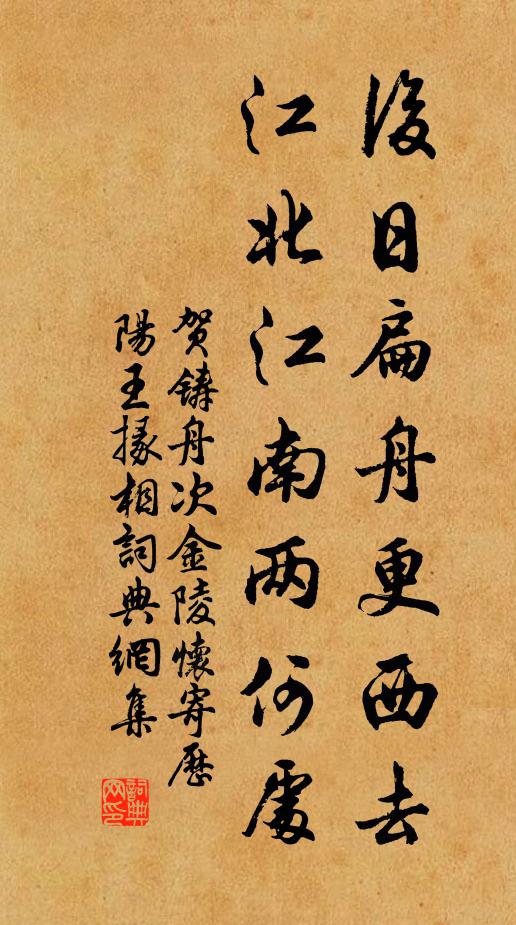 後日扁舟更西去
江北江南两何處
贺鑄舟次金陵懷寄歷
陽王掾相詞典網集
詞典
网印